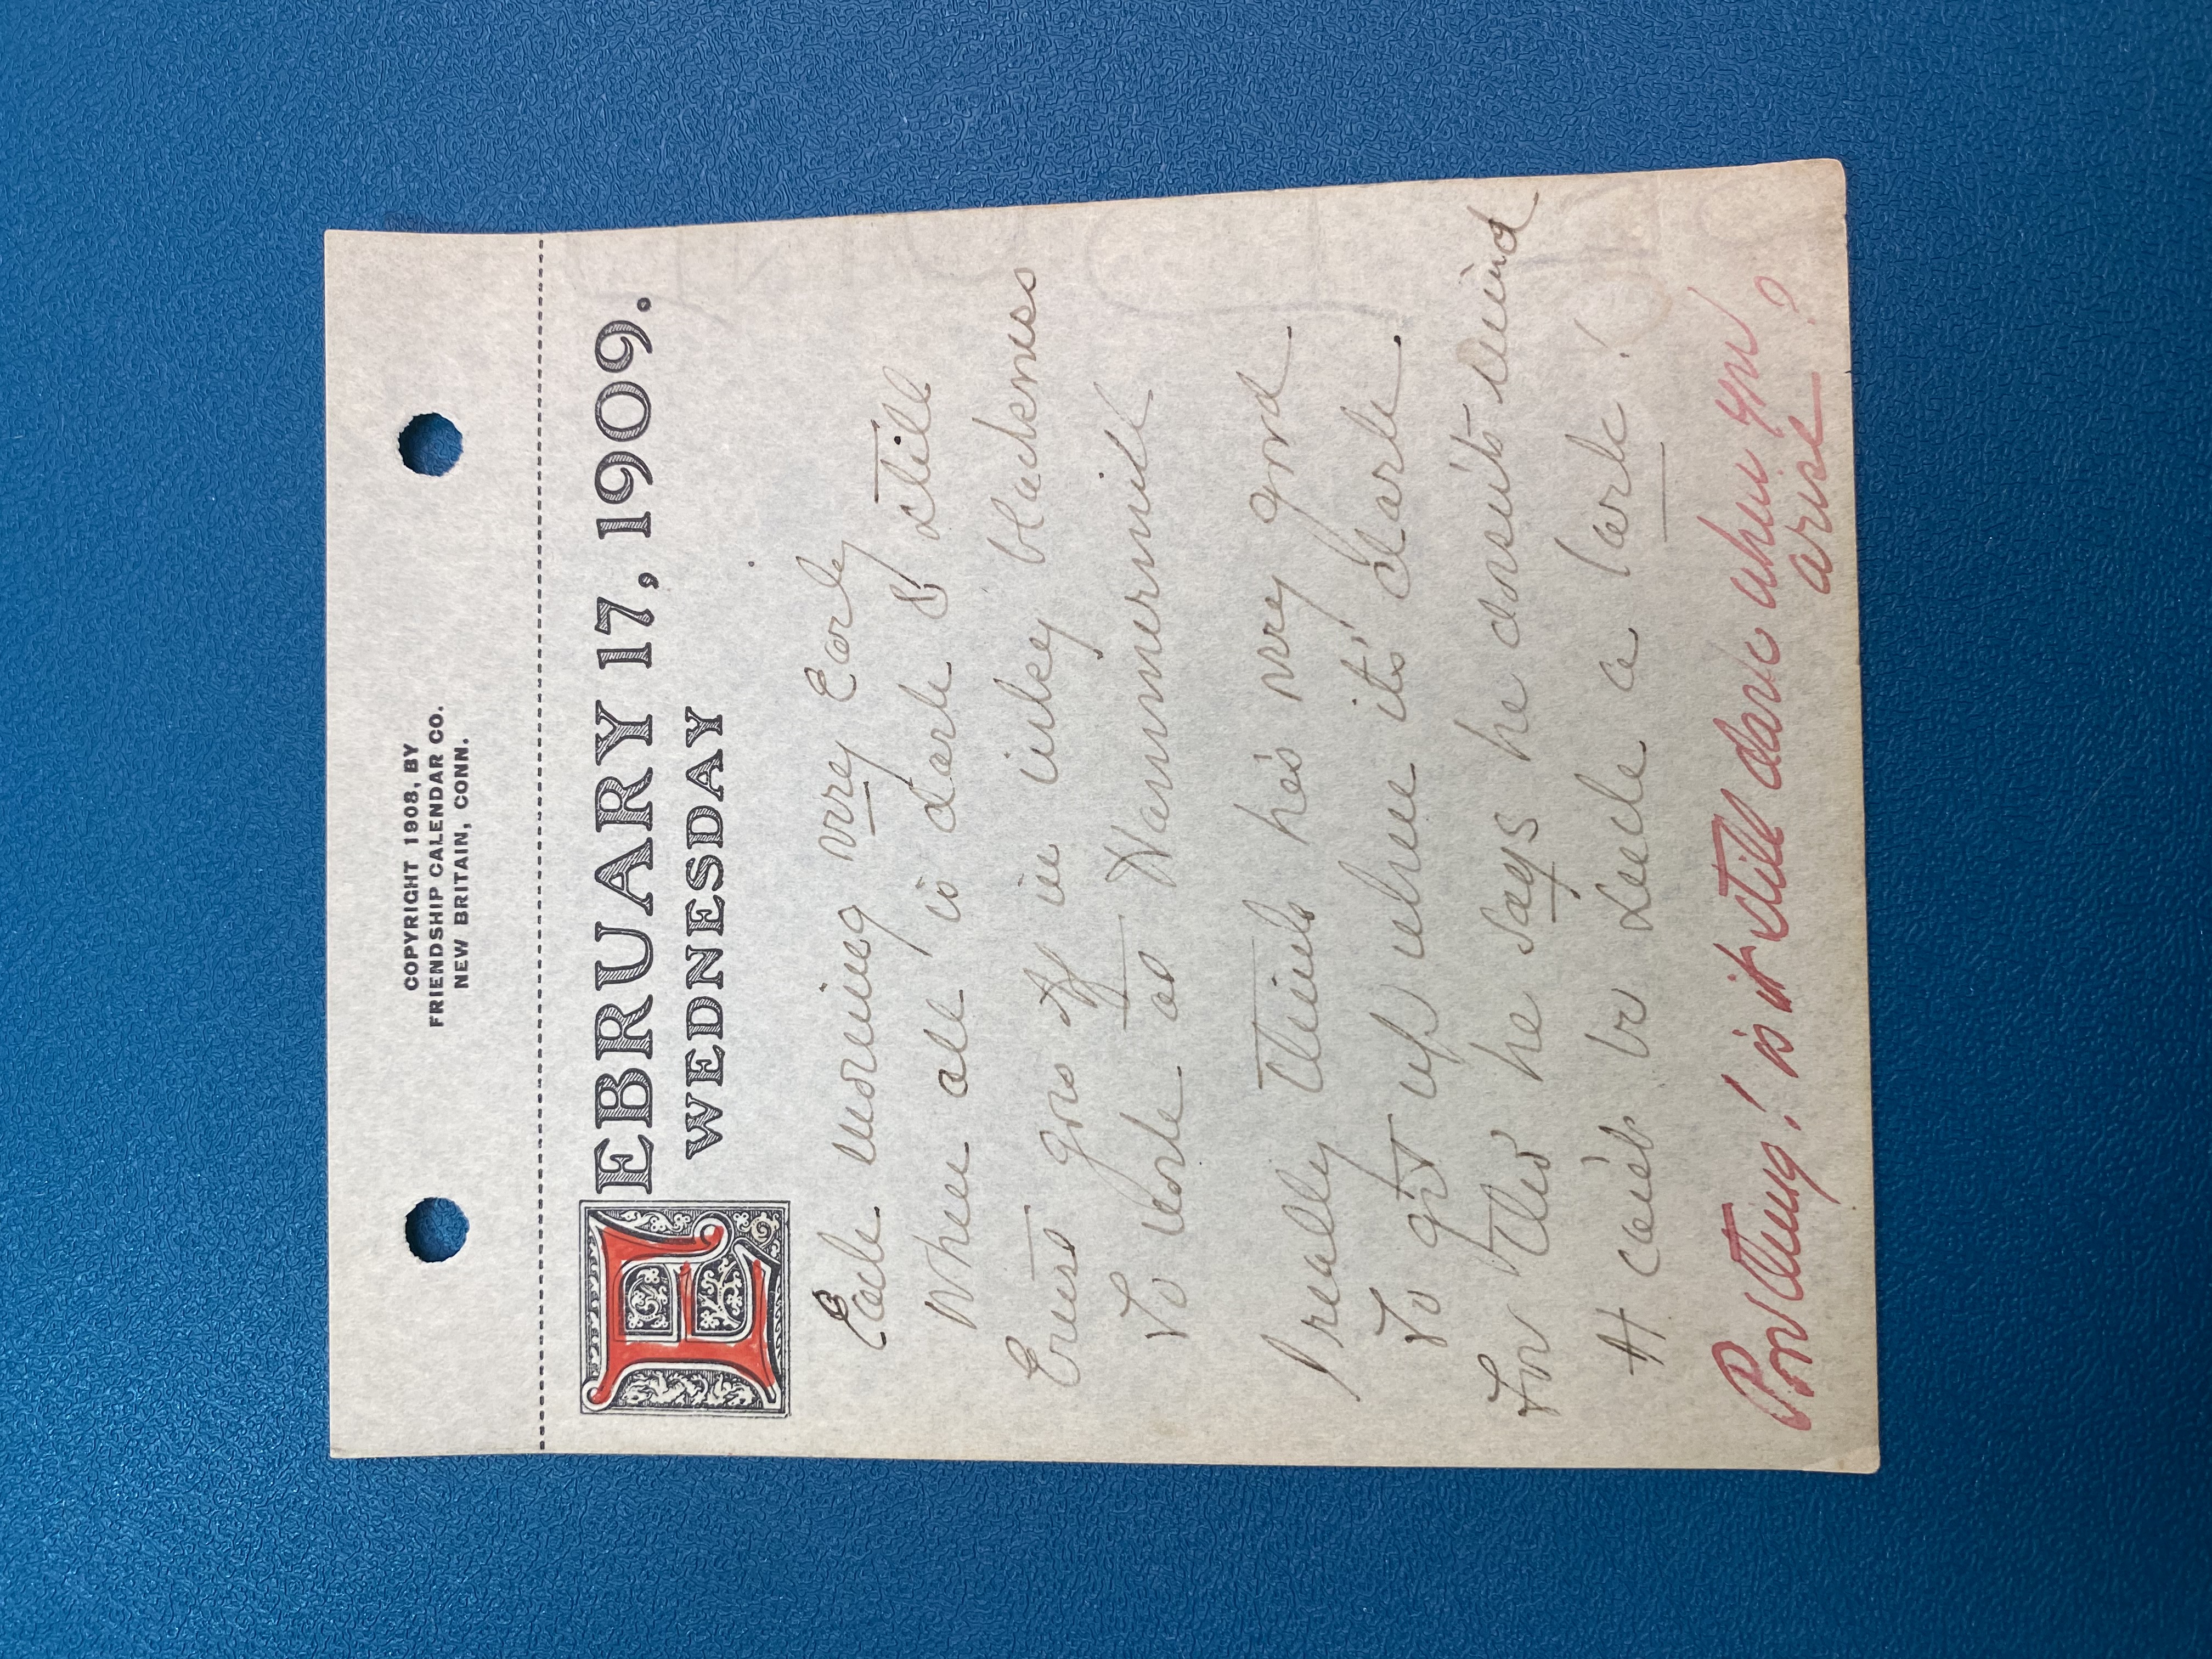 COPYRIGHT 1908, BY
FRIENDSHIP CALENDAR CO.
NEW BRITAIN, CONN.
FEBRUARY 17, 1909.
WEDNESDAY
Each morning very Early
When all is dark & still
Ernst goes off in inky blackness
To work at Hammermill
I really think he's very good
To get up when it's dark.
For tho' he says he doesn't mind
It can't be such a lark!
Poor thing! is it still dark when you
arise?